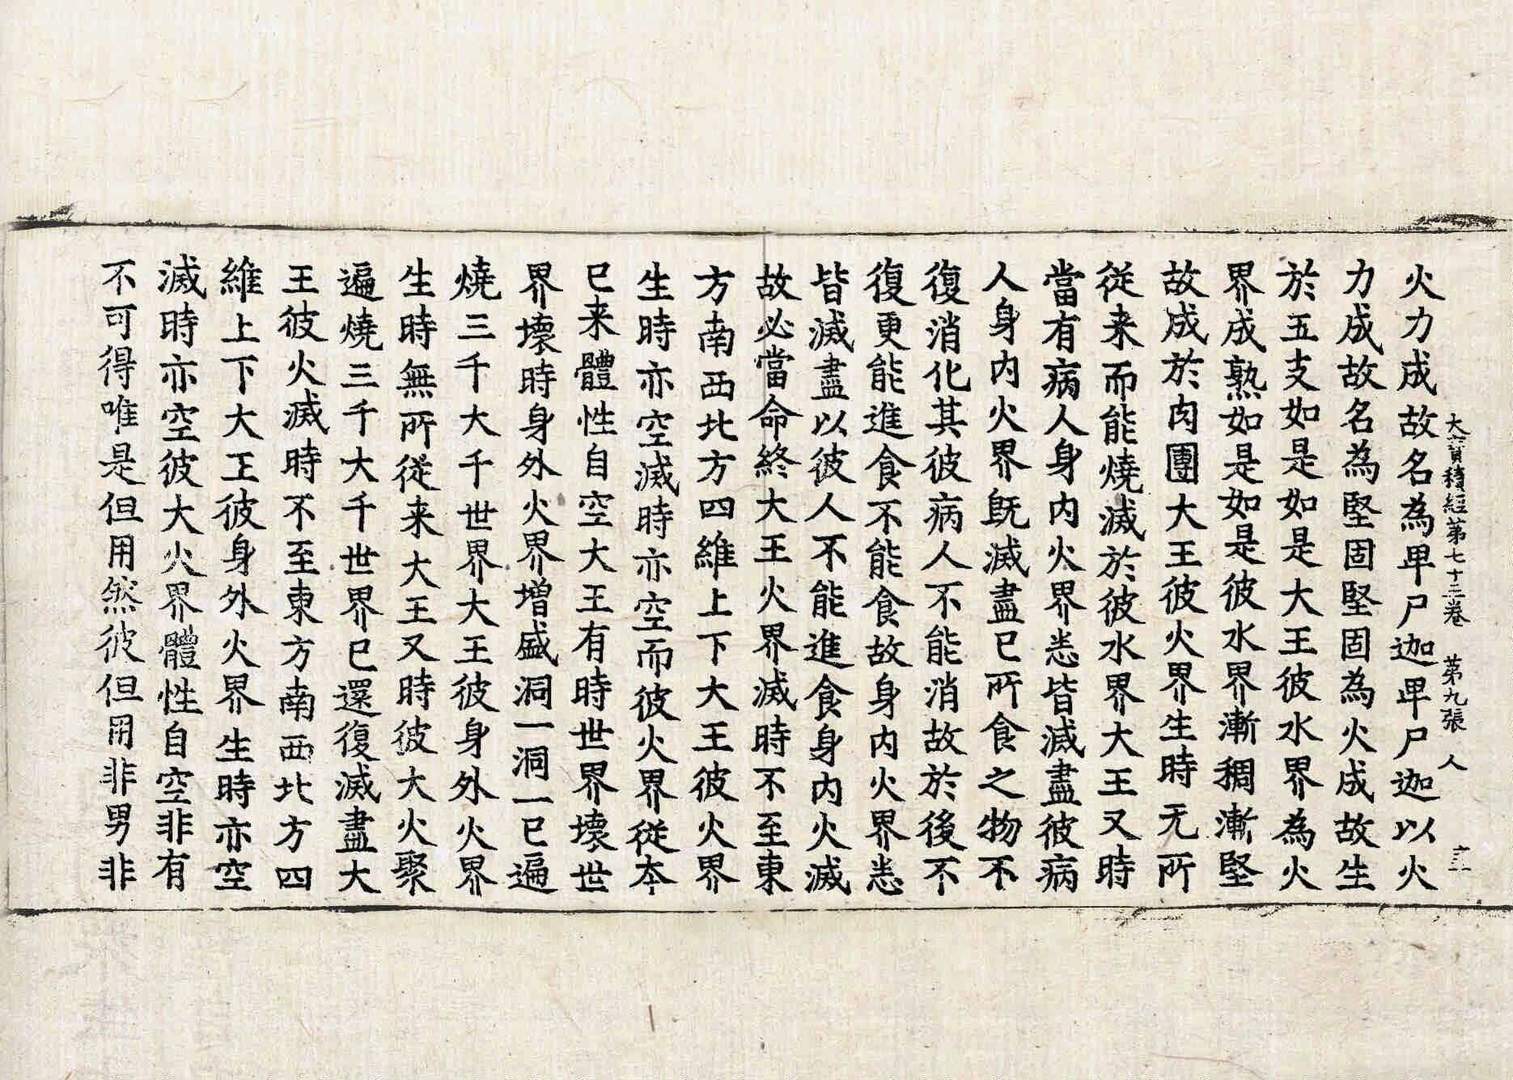 大寶積經第七十三卷 第九張 人
火力成故名為卑尸迦卑尸迦以火
力成故名為堅固堅固為火成故生
於五支如是如是大王彼水界為火
界成熟如是如是彼水界漸稠漸堅
故成於肉團大王彼火界生時无所
從来而能燒滅於彼水界大王又時
當有病人身內火界悉皆滅盡彼病
人身內火界既滅盡已所食之物不
復消化其彼病人不能消故於後不
復更能進食不能食故身內火界悉
皆滅盡以彼人不能進食身內火滅
故必當命終大王火界滅時不至東
方南西北方四維上下大王彼火界
生時亦空滅時亦空而彼火界從本
已来體性自空大王有時世界壞世
界壞時身外火界增盛洞一洞一已遍
燒三千大千世界大王彼身外火界
生時無所從来大王又時彼大火聚
遍燒三千大千世界已還復滅盡大
王彼火滅時不至東方南西北方四
維上下大王彼身外火界生時亦空
滅時亦空彼大火界體性自空非有
不可得唯是但用然彼但用非男非